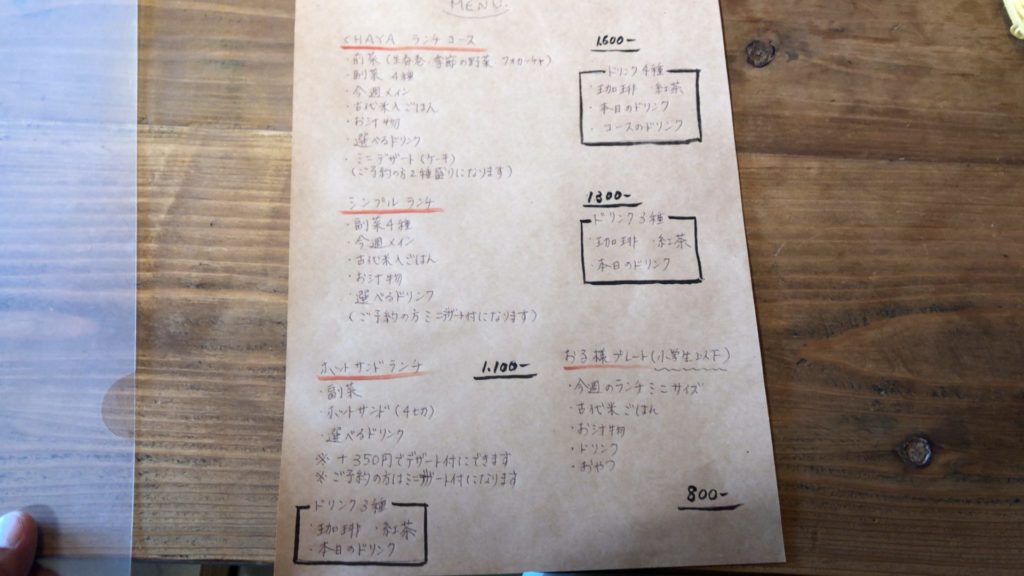 MENU.
CHAYA ランチコース
1.600-
・前菜(生春巻・季節の野菜 フォカッチャ)
・副菜 4種
・今週メイン
・古代米入ごはん
・お汁物
・選べるドリンク
・ミニデザート(ケーキ)
(ご予約の方2種盛りになります)
ドリンク4種
・珈琲 ・紅茶
・本日のドリンク
・コースのドリンク
シンプルランチ
1300-
・副菜4種
・今週メイン
・古代米入ごはん
・お汁物
・選べるドリンク
(ご予約の方ミニデザート付になります)
ドリンク3種
・珈琲 ・紅茶
・本日のドリンク
ホットサンドランチ
1.100-
・副菜
・ホットサンド(4セカ)
・選べるドリンク
※+350円でデザート付にできます
※ご予約の方はミニデザート付になります
ドリンク3種
・珈琲 ・紅茶
・本日のドリンク
お子様プレート(小学生以下)
・今週のランチミニサイズ
・古代米ごはん
・お汁物
・ドリンク
・おやつ
800-